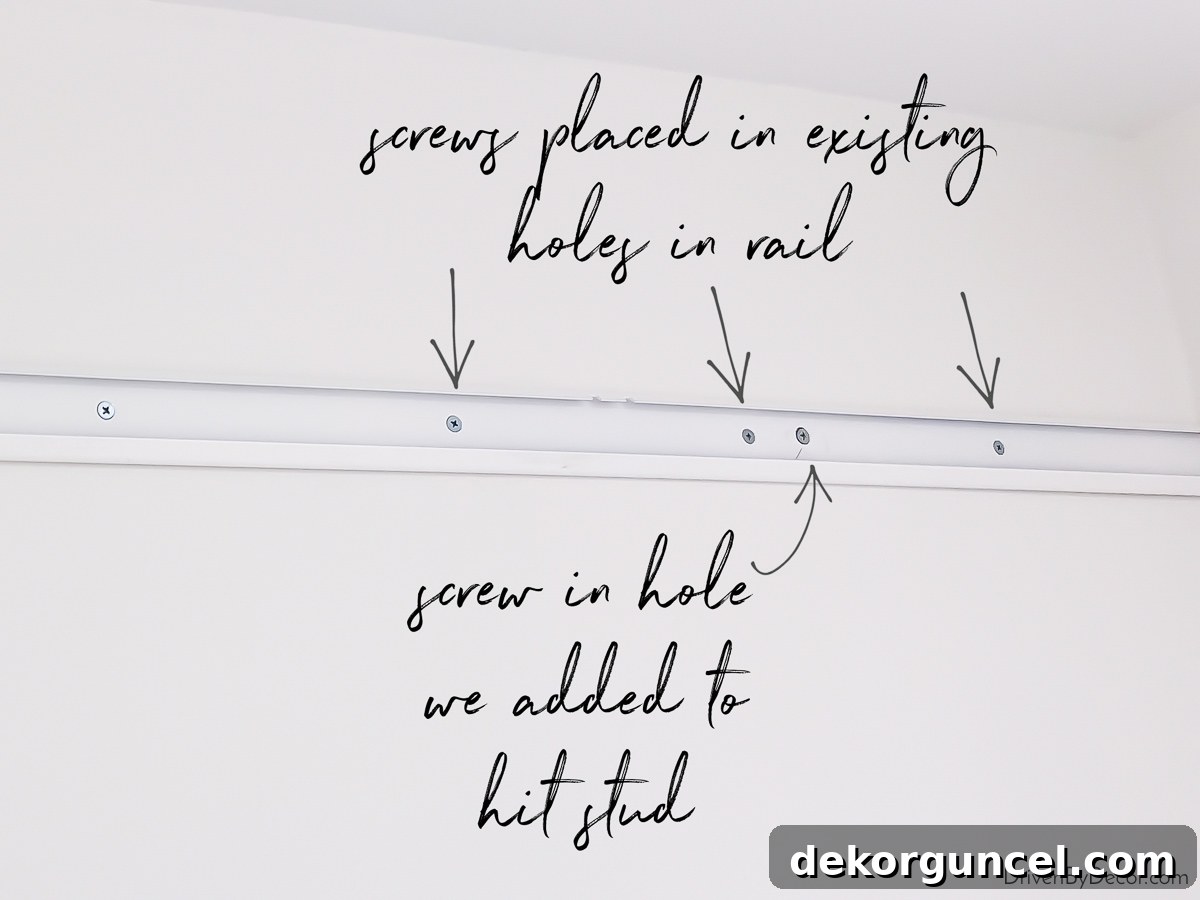 screws placed in existing
holes in rail
screw in hole
we added to
hit stud
dekorguncel.com
DrivenByDecor.com